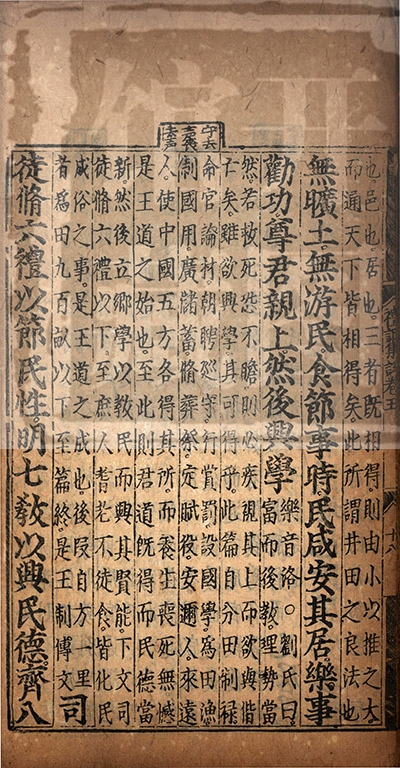 禮記集說卷五
十八
也邑也居也三者既相得則由小以推之大
而通天下皆相得矣此所謂井田之良法也
無曠土無游民食節事時民咸安其居樂事
勸功尊君親上然後興學
樂音洛○劉氏曰
富而後教理勢當
然若救死恐不贍則必疾視其上而欲與偕
亡矣雖欲興學其可得乎此篇自分田制祿
命官論材朝聘巡守行賞罰設國學爲田漁
制國用廣儲蓄脩葬祭定賦役安邇人來遠
人使中國五方各得其所而養生喪死無憾
是王道之始也至此則君道既得而民德當
新然後立鄉學以教民而興其賢能下文司
徒脩六禮以下至庶人耆老不徒食皆化民
成俗之事是王道之成也後叚自方一里
者爲田九百畝以下至篇終是王制傳文
司
徒脩六禮以節民性明七教以興民德齊八